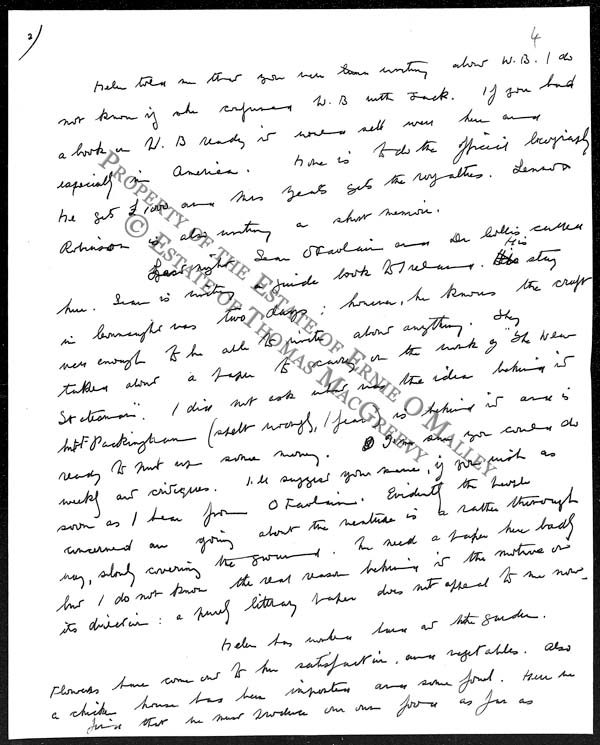 2)
4
Helen told me that you were been writing about W.B. I do
not know if she confused W.B with Jack. If you had
a book on W.B ready it would sell well here and
especially in America. Hone is to do the official biography
He gets £1000 and Mrs Yeats gets the royalties. Lennox
Robinson is also writing a short memoir.
Last night Sean O Faolain and Dr Collis called
here. Sean is writing a guide book to Ireland. His stay
in Connaught was two days; however, he knows the craft
well enough to be able to write about anything. They
talked about a paper to carry on the work of "The New
Statesman". I did not ask what was the idea behind it
but Packingham (spelt wrongly, I fear) is behind it and is
ready to put up some money. I am sure you could do
weekly art critiques. I'll suggest your name, if you wish as
soon as I hear from O Faolain. Evidently the people
concerned are going about the venture in a rather thorough
way, slowly covering the ground. We need a paper here badly
but I do not know the real reason behind it the motive or
its direction: a purely literary paper does not appeal to me now.
Helen has worked hard at the garden.
Flowers have come out to her satisfaction, and vegetables. Also
a chicken house has been imported and some fowl. Here we
find that we must produce our own food as far as
Property of the Estate of Ernie O'Malley
© Estate of Thomas MacGreevy